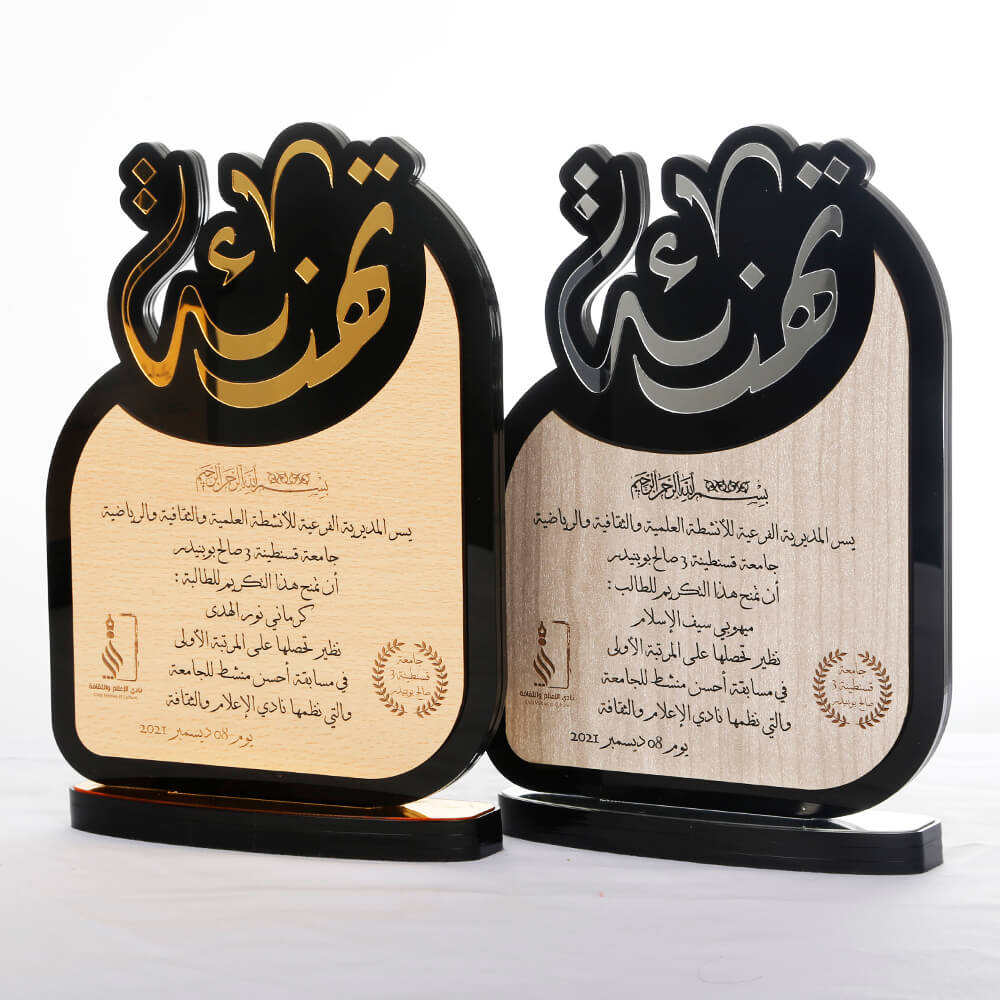 تهنئة
بسم الله الرحمن الرحيم
يسر المديرية الفرعية للأنشطة العلمية والثقافية والرياضية
جامعة قسنطينة 3 صالح بوبنيدر
أن تمنح هذا التكريم للطالبة :
كرماني نور الهدى
نظير تحصلها على المرتبة الأولى
في مسابقة أحسن منشط للجامعة
والتي نظمها نادي الإعلام والثقافة
يوم 08 ديسمبر 2021
نادي الإعلام والثقافة
جامعة
قسنطينة 3
صالح بوبنيدر
تهنئة
بسم الله الرحمن الرحيم
يسر المديرية الفرعية للأنشطة العلمية والثقافية والرياضية
جامعة قسنطينة 3 صالح بوبنيدر
أن تمنح هذا التكريم للطالب :
ميهوبي سيف الإسلام
نظير تحصلها على المرتبة الأولى
في مسابقة أحسن منشط للجامعة
والتي نظمها نادي الإعلام والثقافة
يوم 08 ديسمبر 2021
نادي الإعلام والثقافة
جامعة
قسنطينة 3
صالح بوبنيدر